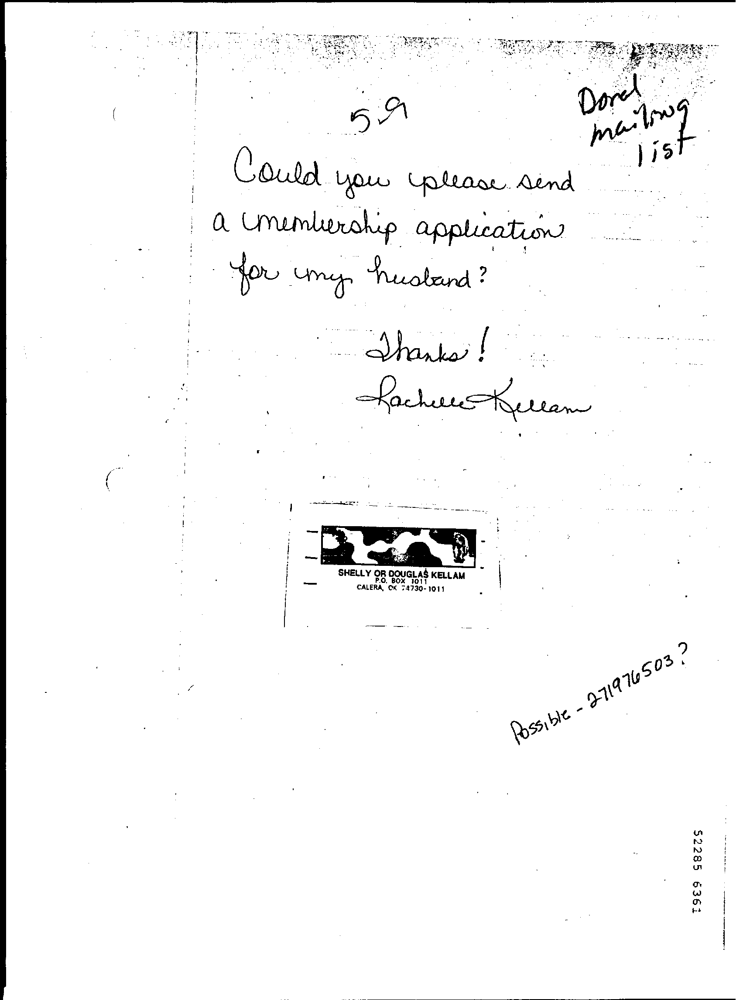 5.9
Doral
mailing
list
Could you please send
a membership application
for my husband?
Thanks!
Rachelle Kellam
SHELLY OR DOUGLAS KELLAM
P.O. BOX 1011
CALERA, OK 74730-1011
Possible - 271976503?
52285 6361